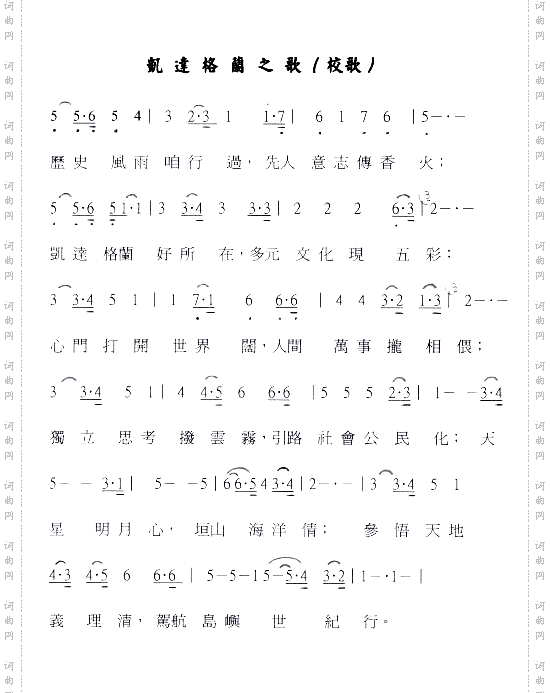 凱達格蘭之歌(校歌)
5 5·6 5 4 | 3 2·3 1 1·7 | 6 1 7 6 | 5 — · —
歷史 風雨 咱行 過，先人 意志傳香 火；
5 5·6 5 1·1 | 3 3·4 3 3·3 | 2 2 2 6·3 | 2 — · —
凱達 格蘭 好所 在，多元 文化現 五彩；
3 3·4 5 1 | 1 7·1 6 6·6 | 4 4 3·2 1·3 | 2 — · —
心門 打開 世界 闊，人間 萬事攏 相偎；
3 3·4 5 1 | 4 4·5 6 6·6 | 5 5 5 2·3 | 1 — — 3·4
獨立 思考 撥雲 霧，引路 社會公民 化；天
5 — — 3·1 | 5 — — 5 | 6 6·5 4 3·4 | 2 — · — | 3 3·4 5 1
星 明月 心， 垣山 海洋 情； 參悟天地
4·3 4·5 6 6·6 | 5 — 5 — 1 5 — 5·4 3·2 | 1 — · 1 — |
義 理清，駕航 島嶼 世 紀行。
词曲网
词曲网